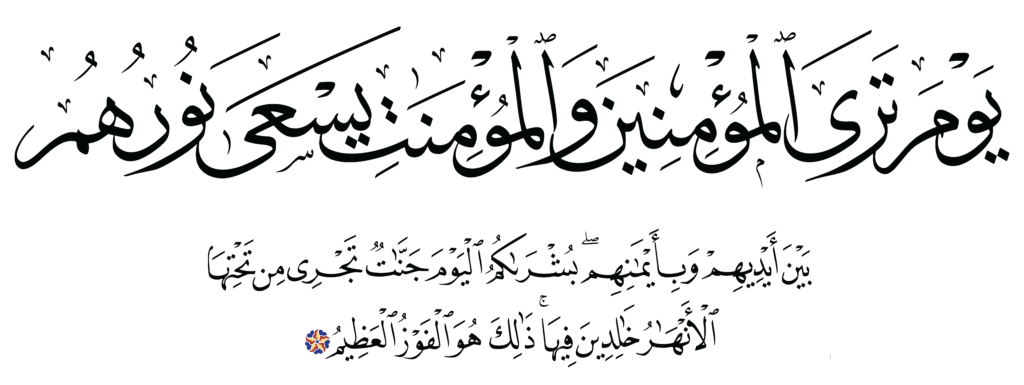 يَوْمَ تَرَى ٱلْمُؤْمِنِينَ وَٱلْمُؤْمِنَٰتِ يَسْعَىٰ نُورُهُمْ
بَيْنَ أَيْدِيهِمْ وَبِأَيْمَٰنِهِمۖ بُشْرَىٰكُمُ ٱلْيَوْمَ جَنَّٰتٌ تَجْرِى مِن تَحْتِهَا
ٱلْأَنْهَٰرُ خَٰلِدِينَ فِيهَاۚ ذَٰلِكَ هُوَ ٱلْفَوْزُ ٱلْعَظِيمُ